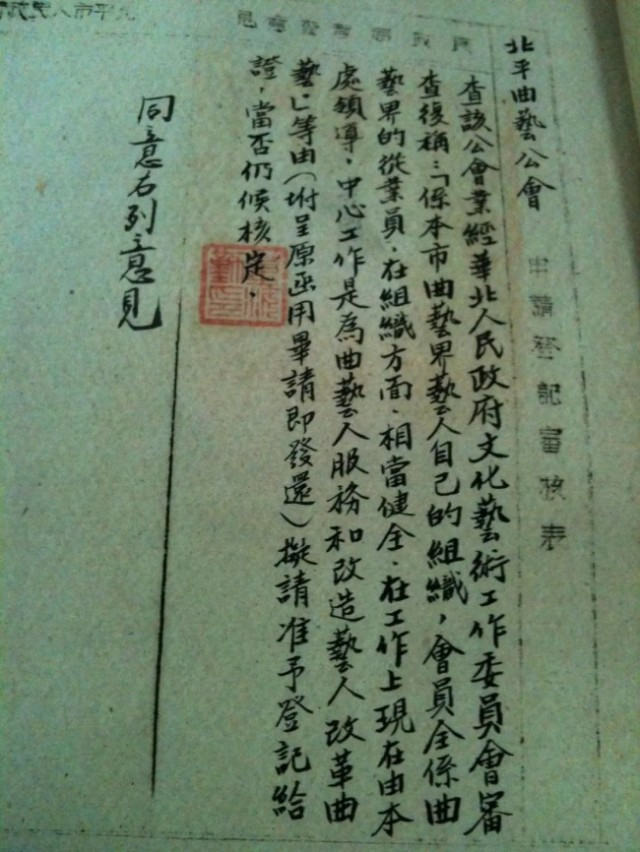 北平曲藝公會
申請登記審核表
查該公會業經華北人民政府文化藝術工作委員會審
查復稱：「係本市曲藝界藝人自己的組織，會員全係曲
藝界的從業員，在組織方面，相當健全，在工作上現在由本
處領導，中心工作是為曲藝人服務和改造藝人改革曲
藝」等由（坿呈原函用畢請即發還）擬請准予登記給
證，當否仍候核定，
同意右列意見